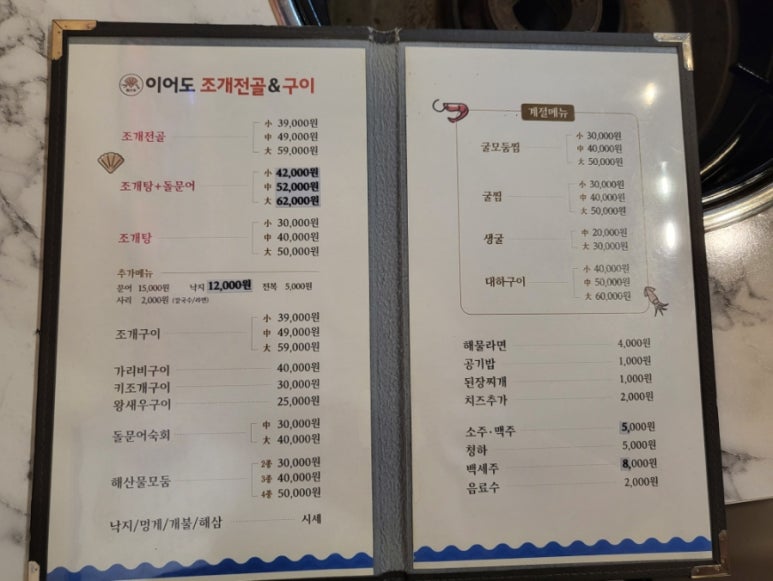 이어도 조개전골&구이
조개전골 小 39,000원
中 49,000원
大 59,000원
조개탕+돌문어 小 42,000원
中 52,000원
大 62,000원
조개탕 小 30,000원
中 40,000원
大 50,000원
추가메뉴
문어 15,000원 낙지 12,000원 전복 5,000원
사리 2,000원 (칼국수/라면)
조개구이 小 39,000원
中 49,000원
大 59,000원
가리비구이 40,000원
키조개구이 30,000원
왕새우구이 25,000원
돌문어숙회 中 30,000원
大 40,000원
해산물모둠 2종 30,000원
3종 40,000원
4종 50,000원
낙지/멍게/개불/해삼 시세
계절메뉴
굴모둠찜 小 30,000원
中 40,000원
大 50,000원
굴찜 小 30,000원
中 40,000원
大 50,000원
생굴 中 20,000원
大 30,000원
대하구이 小 40,000원
中 50,000원
大 60,000원
해물라면 4,000원
공기밥 1,000원
된장찌개 1,000원
치즈추가 2,000원
소주·맥주 5,000원
청하 5,000원
백세주 8,000원
음료수 2,000원